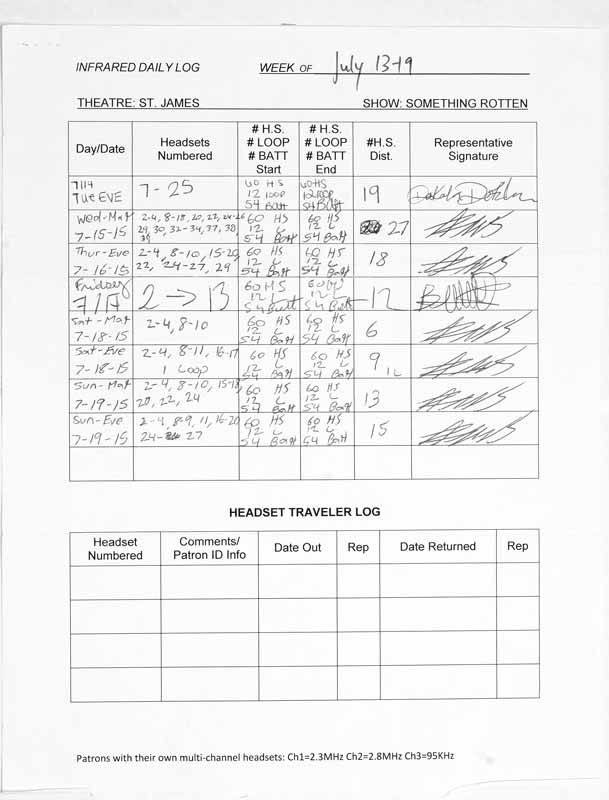 INFRARED DAILY LOG WEEK OF July 13-19
THEATRE: ST. JAMES SHOW: SOMETHING ROTTEN
Day/Date Headsets Numbered # H.S. # LOOP # BATT Start # H.S. # LOOP # BATT End #H.S. Dist. Representative Signature
7/14 Tue EVE 7-25 60 HS 12 LOOP 54 Batt 60 HS 12 LOOP 54 Batt 19
Wed-Mat 7-15-15 2-4, 8-18, 20, 22, 24-26 29, 30, 32-34, 37, 38, 39 60 HS 12 L 54 Batt 60 HS 12 L 54 Batt 27
Thur-Eve 7-16-15 2-4, 8-10, 15-20, 22, 24-27, 29 60 HS 12 L 54 Batt 60 HS 12 L 54 Batt 18
Friday 7/17 2 → 13 60 HS 12 L 54 Batt 60 HS 12 L 54 Batt 12
Sat-Mat 7-18-15 2-4, 8-10 60 HS 12 L 54 Batt 60 HS 12 L 54 Batt 6
Sat-Eve 7-18-15 2-4, 8-11, 16-17 1 Loop 60 HS 12 L 54 Batt 60 HS 12 L 54 Batt 9 1L
Sun-Mat 7-19-15 2-4, 8-10, 15-18, 20, 22, 24 60 HS 12 L 54 Batt 60 HS 12 L 54 Batt 13
Sun-Eve 7-19-15 2-4, 8-9, 11, 16-20 24-27 60 HS 12 L 54 Batt 60 HS 12 L 54 Batt 15
HEADSET TRAVELER LOG
Headset Numbered Comments/ Patron ID Info Date Out Rep Date Returned Rep
Patrons with their own multi-channel headsets: Ch1=2.3MHz Ch2=2.8MHz Ch3=95KHz